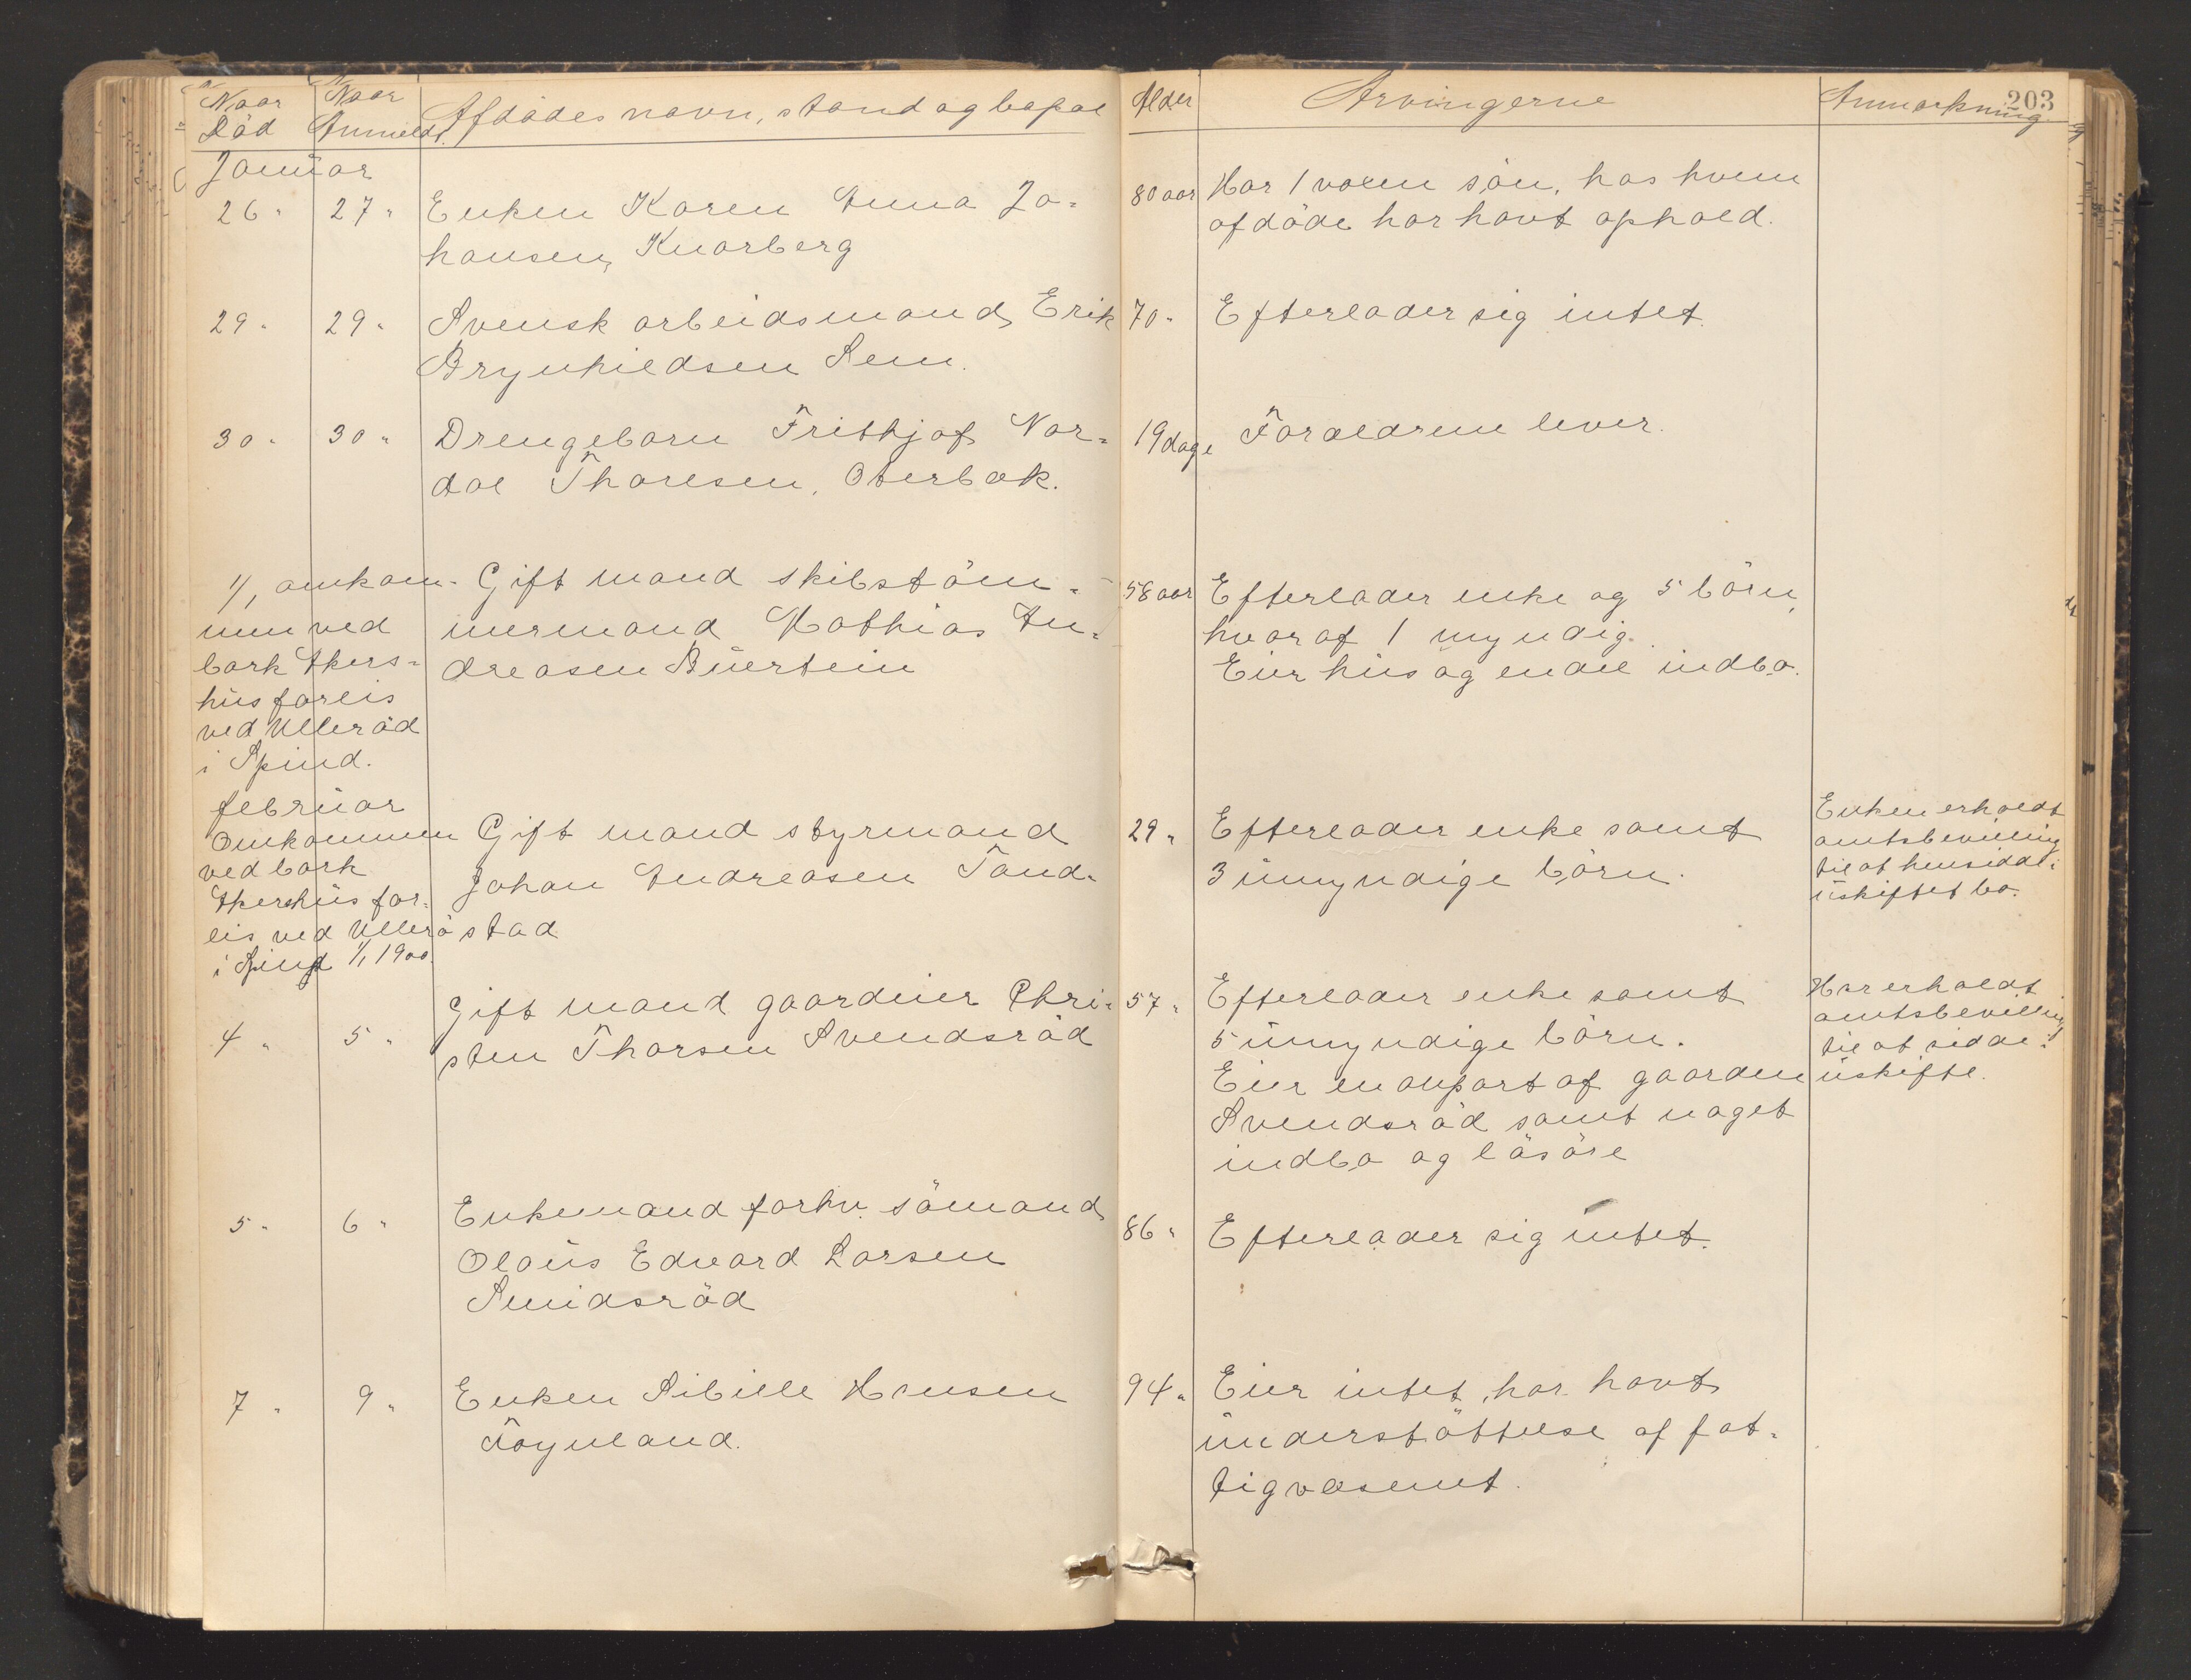 Naar Død
Naar Anmeldt.
Afdødes navn, stand og bopæl
Alder
Arvingerne
Anmærkning.
203
Januar
26 " 27 " Enken Karen Anna Jo-
hansen, Knarberg
80 aar
Har 1 voxen søn, hos hvem
afdøde har havt ophold.
29 " 29 " Svensk arbeidsmand, Erik
Brynhildsen Sem.
70 "
Efterlader sig intet.
30 " 30 " Drengebarn Frithjof Nor-
dal Thoresen, Oterbæk.
19 dage
Forældrene lever.
1/1 omkom-
men ved
bark Akers-
hus forlis
ved Ullerød
i Spind.
Gift mand skibstøm-
mermand Mathias An-
dreasen Buerstein
58 aar
Efterlader enke og 5 børn,
hvoraf 1 myndig.
Eier hus og endel indbo.
februar
Omkommen
ved bark
Akershus for-
lis ved Ullerø
i Spind 1/1 1900.
Gift mand styrmand
Johan Andreasen Tand-
stad
29 "
Efterlader enke samt
3 umyndige børn.
Enken erholdt
amtsbevilling
til at hensidde i
uskiftet bo.
4 " 5 " Gift mand gaardeier Chri-
sten Thorsen Svendsrød
57 "
Efterlader enke samt
5 umyndige børn.
Eier en anpart af gaarden
Svendsrød samt noget
indbo og løsøre
Har erholdt
amtsbevilling
til at sidde i
uskifte.
5 " 6 " Enkemand forhv. sømand
Olaus Edvard Larsen
Smidsrød
86 "
Efterlader sig intet.
7 " 9 " Enken Sibille Hansen
Føynland.
94 "
Eier intet, har havt
understøttelse af fat-
tigvæsenet.